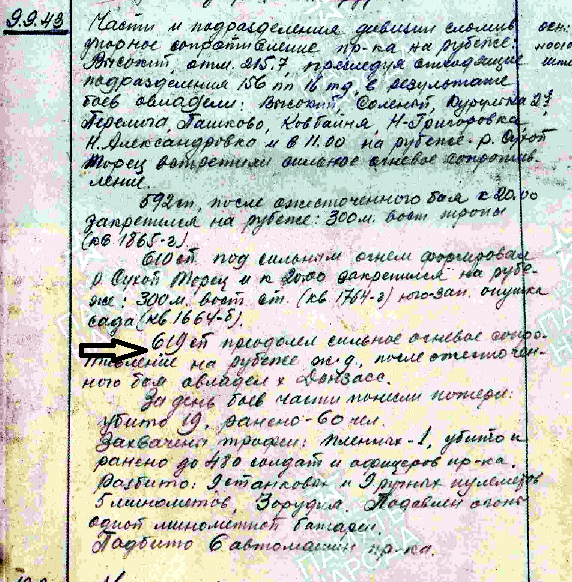 9.9.43
Части и подразделения дивизии сломив
упорное сопротивление пр-ка на рубеже:
Высокий, отм. 215.7, преследуя отходящие
подразделения 156 пп 16 тд, в результате
боев овладели: Высокий, Соленый, Курулька 2я
Перелога, Пашково, Ковбайня, Н-Григоровка,
Н. Александровка и в 11.00 на рубеже р. Сухой
Торец встретили сильное огневое сопротив-
ление.
592 сп, после ожесточенного боя к 20.00
закрепился на рубеже: 300 м. вост. тропы
(кв 1865-г)
610 сп под сильным огнем форсировал
р. Сухой Торец и к 20.00 закрепился на рубе-
же: 300 м. вост. ст. (кв 1764-г) юго-зап. опушка
сада (кв 1664-б)
619 сп преодолел сильное огневое сопро-
тивление на рубеже ж.д., после ожесточен-
ного боя овладел х Донзасс.
За день боев части понесли потери:
убито 19, ранено-60 чел.
Захвачены трофеи: пленных-1, убито и
ранено до 480 солдат и офицеров пр-ка.
Разбито: 9 станковых и 9 ручных пулеметов
5 минометов, 3 орудия. Подавлен огонь
одной минометной батареи.
Подбито 6 автомашин пр-ка.